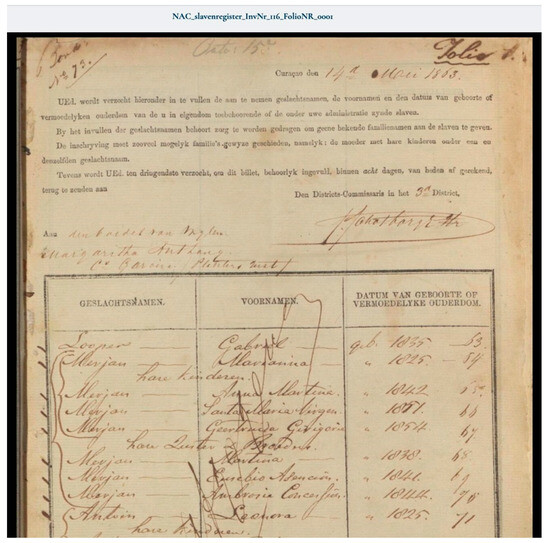 NAC_slavenregister_InvNr_116_FolioNR_0001
No 73.
Folio 1.
Curaçao den 14n Mei 1863.
UEd. wordt verzocht hieronder in te vullen de aan te nemen geslachtsnamen, de voornamen en den datum van geboorte of
vermoedelyken ouderdom van de u in eigendom toebehoorende of de onder uwe administratie zynde slaven.
By het invullen der geslachtsnamen behoort zorg te worden gedragen om geene bekende familienamen aan de slaven te geven.
De inschryving met zooveel mogelyk familie's gewyze geschieden, namelyk: de moeder met hare kinderen onder van en
denzelfden geslachtsnaam.
Tevens wordt UEd. ten dringendste verzocht, om dit billet, behoorlyk ingevuld, binnen acht dagen, van heden af gerekend,
terug te zenden aan
Den Districts-Commissaris in het 3n District.
Aan den boedel van Wylen
Margaritha Anthony
GESLACHTSNAMEN. VOORNAMEN. DATUM VAN GEBOORTE OF VERMOEDELYKE OUDERDOM.
Looper Gabriel geb. 1835 53.
Merjan Marianna " 1825 54
hare kinderen.
Merjan Anna Martina " 1842
Merjan Santa Maria Virgen " 1851 66
Merjan Geertruida " 1854 67
hare Zuster & Broeders.
Merjan Martina " 1838 68
Merjan Eusebio Asencion " 1841 69
Merjan Ambrosia Concepsion " 1844 70
Antvin Leonora " 1825 71
hare kinderen